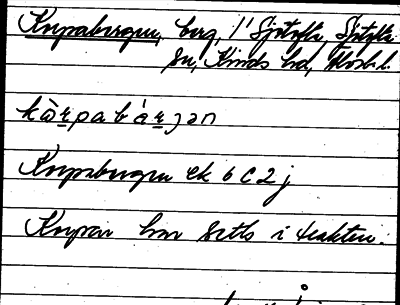 Korpabergen, berg, 1' Sjötofta, Sjötofta
sn, Kinds hd, Älvsb. l.
kòrpabárjən
Korpabergen ek 6 C 2 j
Korpar har setts i trakten.